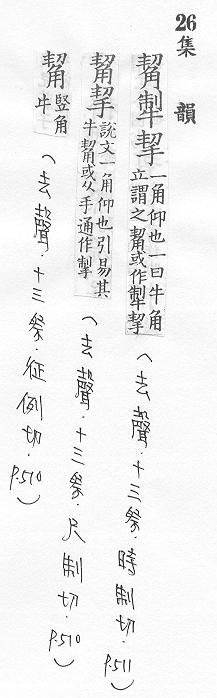 26 集韻
觢挈一角仰也一曰牛角
立謂之觢或作挈
(去聲.十三祭.時制切.P.511)
觢挈說文一角仰也引易其
牛觢或从手通作掣
(去聲.十三祭.尺制切.P.510)
觢竪角
牛
(去聲.十三祭.征例切.P.510)